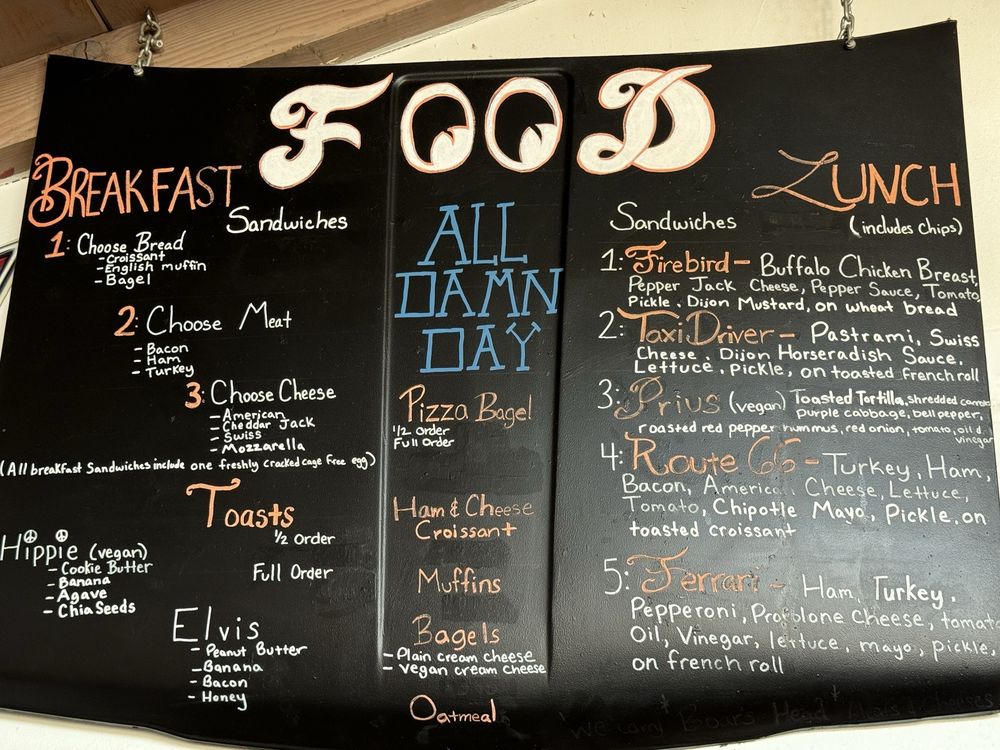 FOOD
BREAKFAST
Sandwiches
1: Choose Bread
- Croissant
- English muffin
- Bagel
2: Choose Meat
- Bacon
- Ham
- Turkey
3: Choose Cheese
- American
- Cheddar Jack
- Swiss
- Mozzarella
(All breakfast Sandwiches include one freshly cracked cage free egg)
Toasts
1/2 Order
Full Order
Hippie (vegan)
- Cookie Butter
- Banana
- Agave
- Chia Seeds
Elvis
- Peanut Butter
- Banana
- Bacon
- Honey
ALL
DAMN
DAY
Pizza Bagel
1/2 Order
Full Order
Ham & Cheese
Croissant
Muffins
Bagels
- Plain cream cheese
- Vegan cream cheese
Oatmeal
LUNCH
Sandwiches (includes chips)
1: Firebird - Buffalo Chicken Breast,
Pepper Jack Cheese, Pepper Sauce, Tomato,
Pickle, Dijon Mustard, on wheat bread
2: Taxi Driver - Pastrami, Swiss
Cheese, Dijon Horseradish Sauce,
Lettuce, pickle, on toasted french roll
3: Prius (vegan) Toasted Tortilla, shredded carrots
purple cabbage, bell pepper,
roasted red pepper hummus, red onion, tomato, oil &
vinegar
4: Route 66 - Turkey, Ham,
Bacon, American Cheese, Lettuce,
Tomato, Chipotle Mayo, Pickle, on
toasted croissant
5: Ferrari - Ham, Turkey,
Pepperoni, Profolone Cheese, tomato
Oil, Vinegar, lettuce, mayo, pickle,
on french roll
* We carry Boars Head * Meats & Cheeses